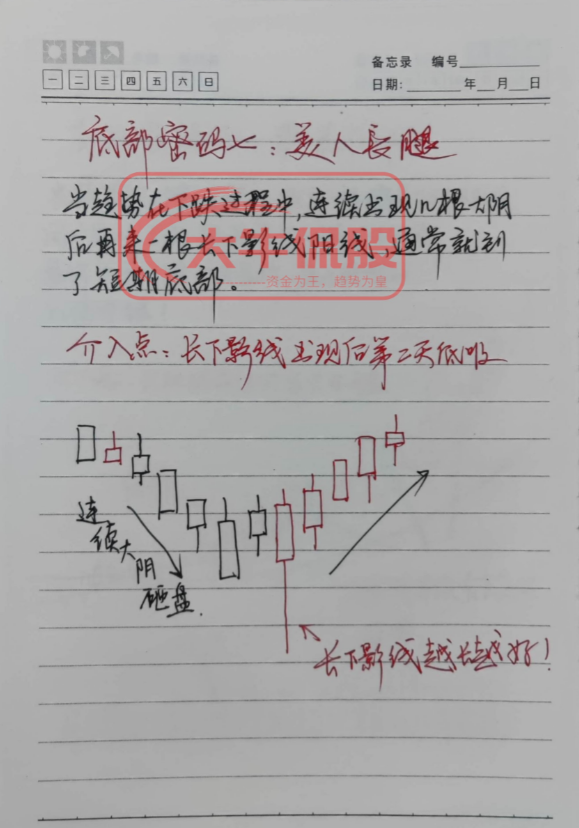 备忘录 编号
一 二 三 四 五 六 日
日期: 年 月 日
底部密码七：美人長腿
当趋势在下跌过程中，连续出现几根大阴
后再来一根长下影线阳线，通常就到
了短期底部。
大牛侃股
资金为王，趋势为皇
介入点：长下影线出现后第二天低吸
连续大阴砸盘.
长下影线越长越好！